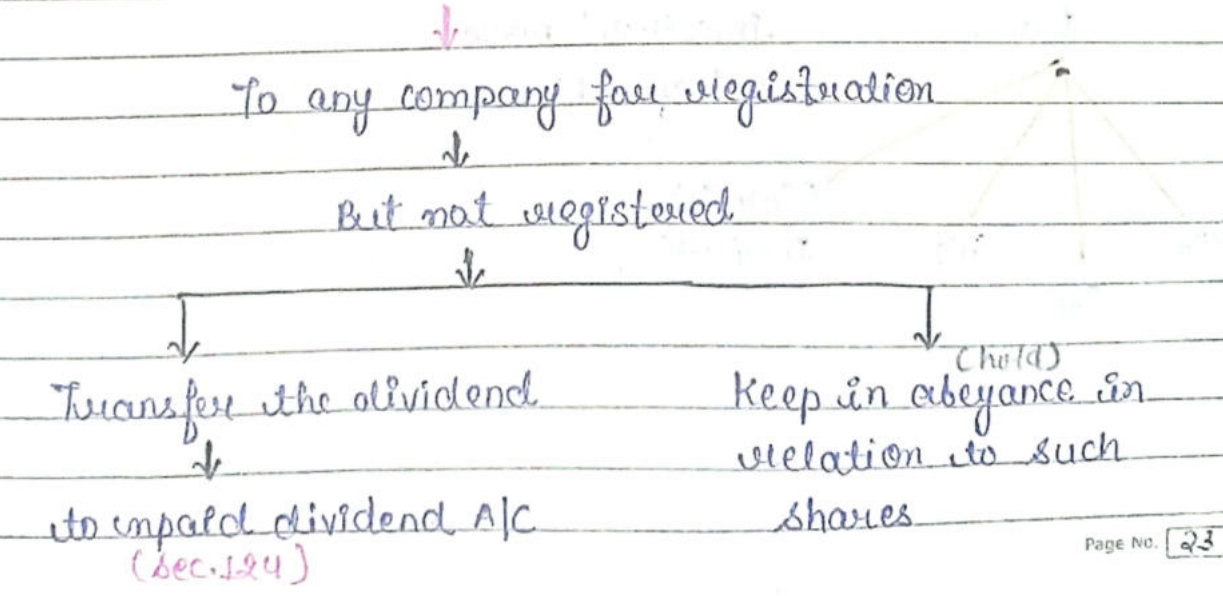 To any company for registration
But not registered
Transfer the dividend
to unpaid dividend A/C
(sec.124)
(hold)
Keep in abeyance in
relation to such
shares
Page No. 23